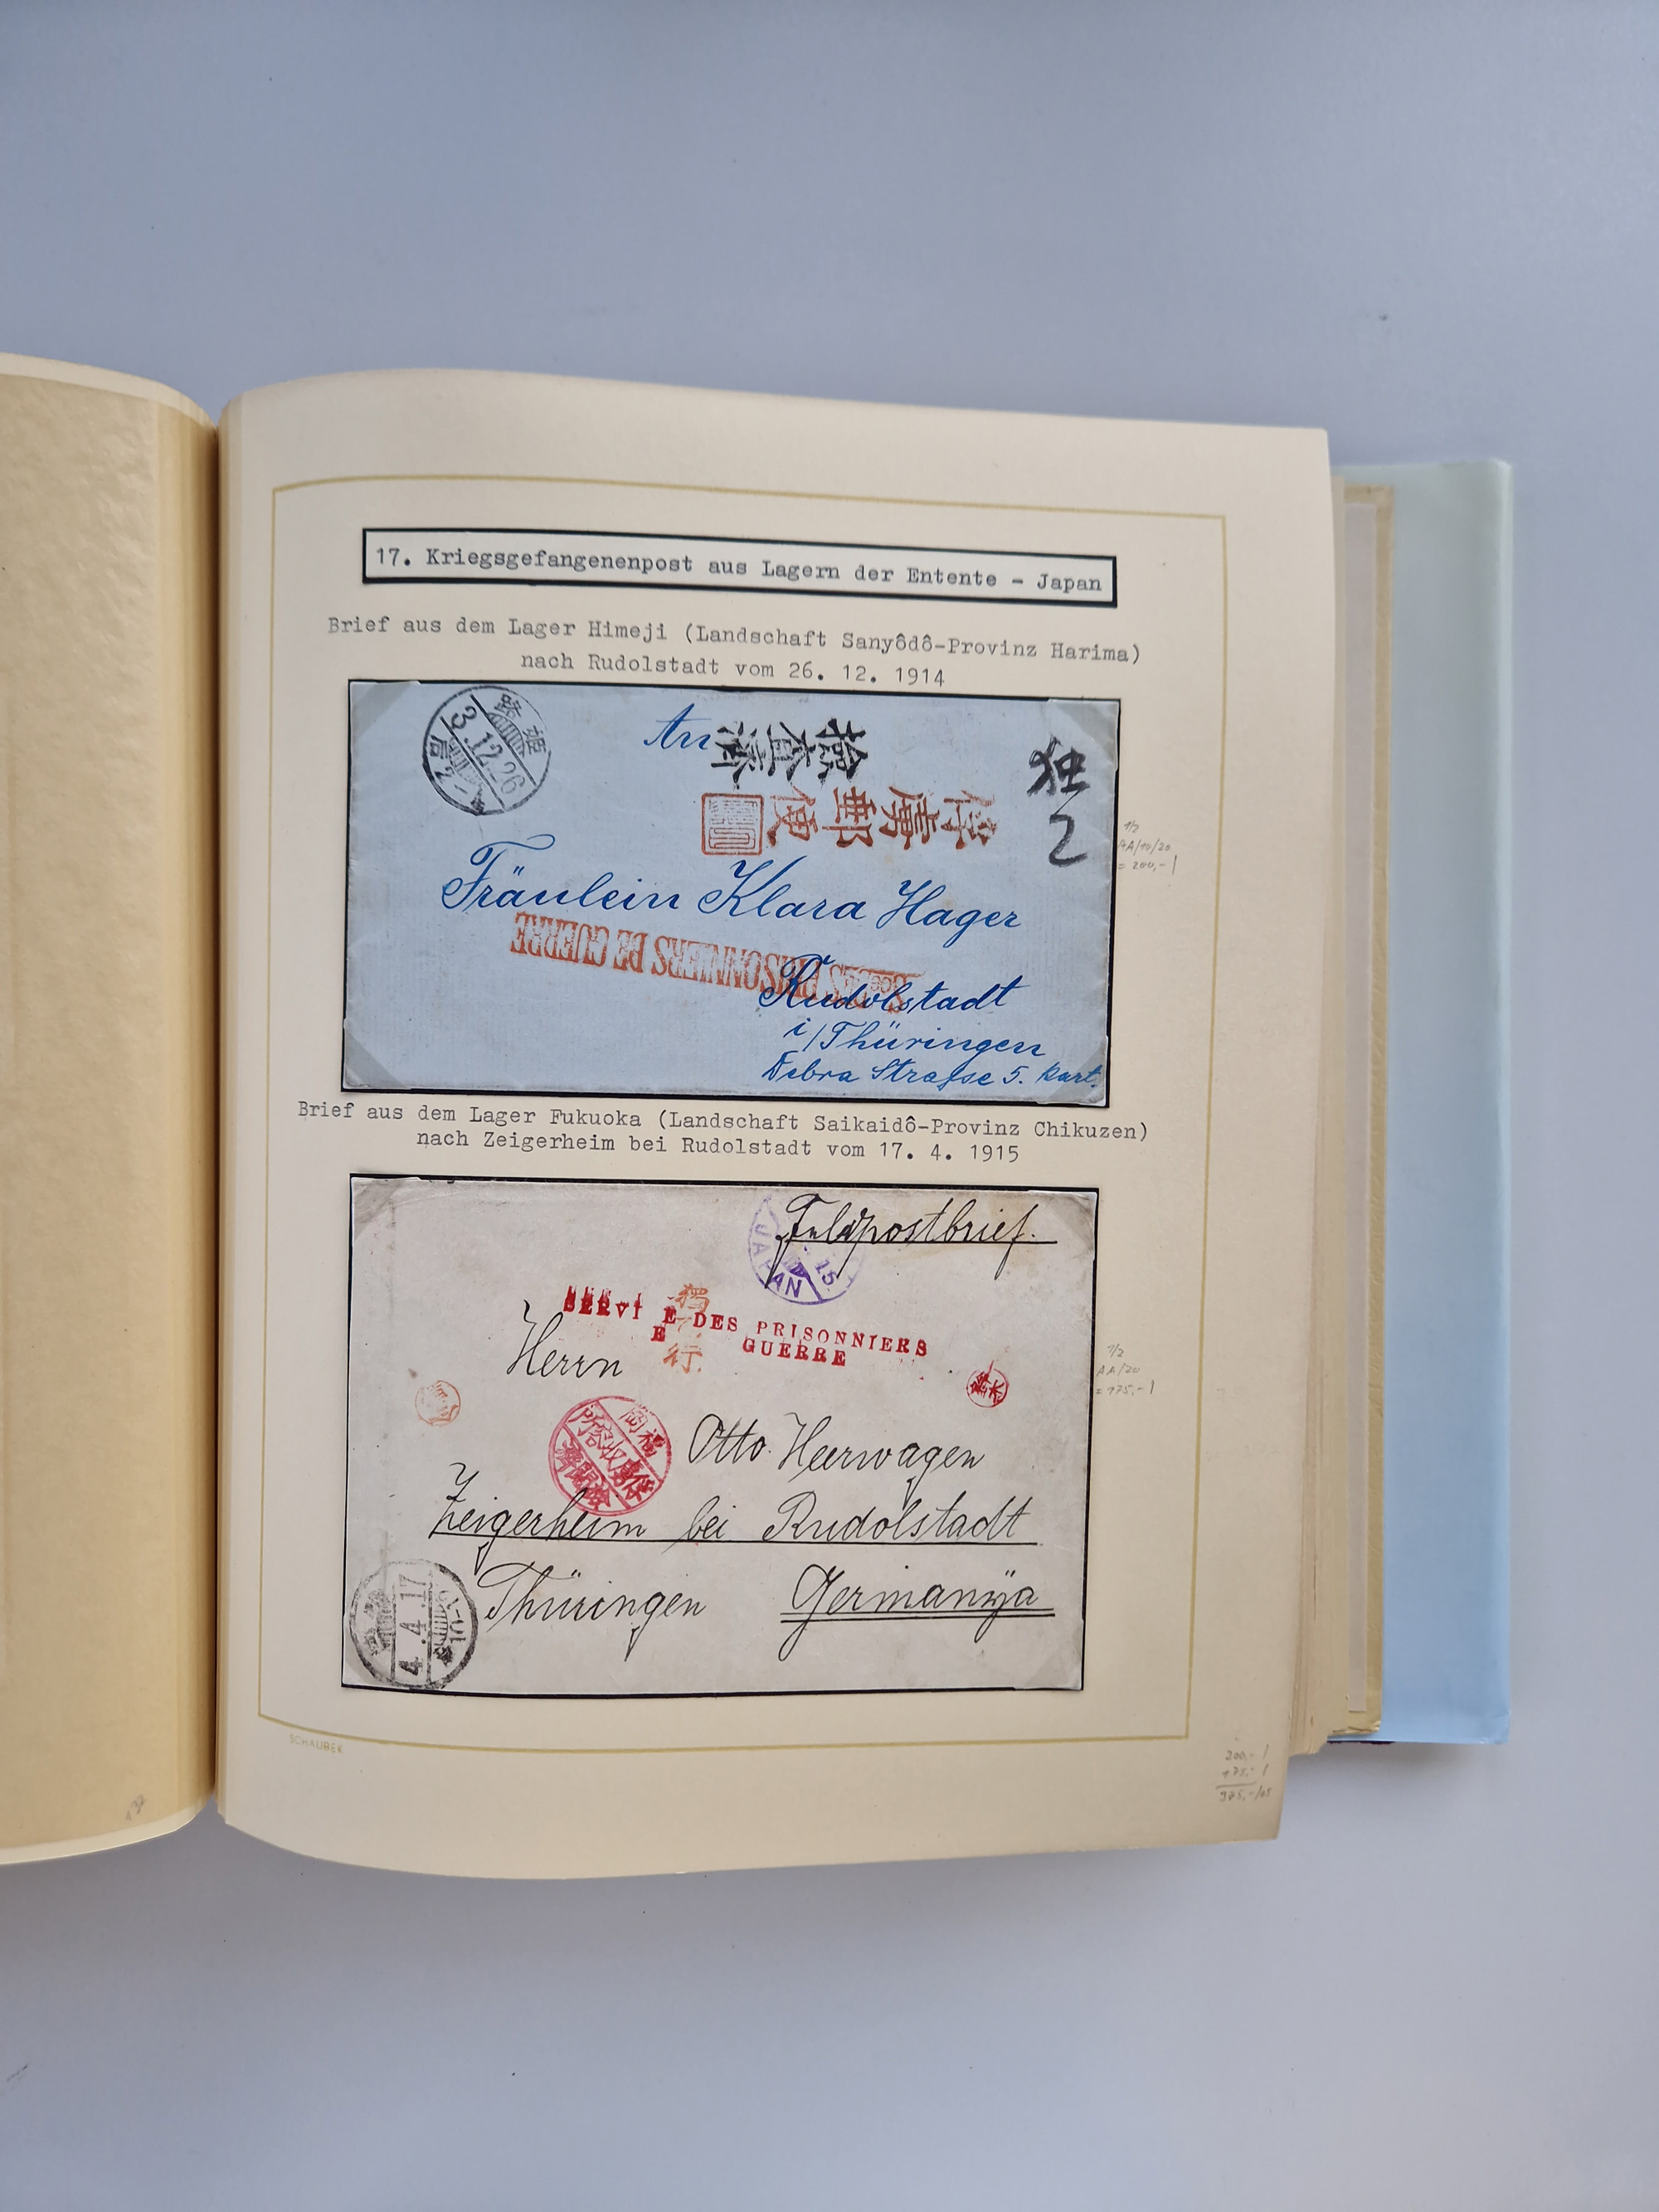 17. Kriegsgefangenenpost aus Lagern der Entente - Japan
Brief aus dem Lager Himeji (Landschaft Sanyôdô-Provinz Harima)
nach Rudolstadt vom 26. 12. 1914
姫路
3.12.26
An
検査済
俘虜郵便
独
2
Fräulein Klara Hager
SERVICE DES PRISONNIERS DE GUERRE
Rudolstadt
i/Thüringen
Debra Strasse 5. part.
1/2
AA/10/20
= 200,-
Brief aus dem Lager Fukuoka (Landschaft Saikaidô-Provinz Chikuzen)
nach Zeigerheim bei Rudolstadt vom 17. 4. 1915
Feldpostbrief.
JAPAN
15
SERVI E DES PRISONNIERS
E GUERRE
獨
行
Herrn
福岡
俘虜収容所
検閲済
Otto Heerwagen
Zeigerheim bei Rudolstadt
Thüringen Germanija
4.4.17
1/2
AA/20
= 175,-
SCHAUBEK
200,-
175,-
375,-